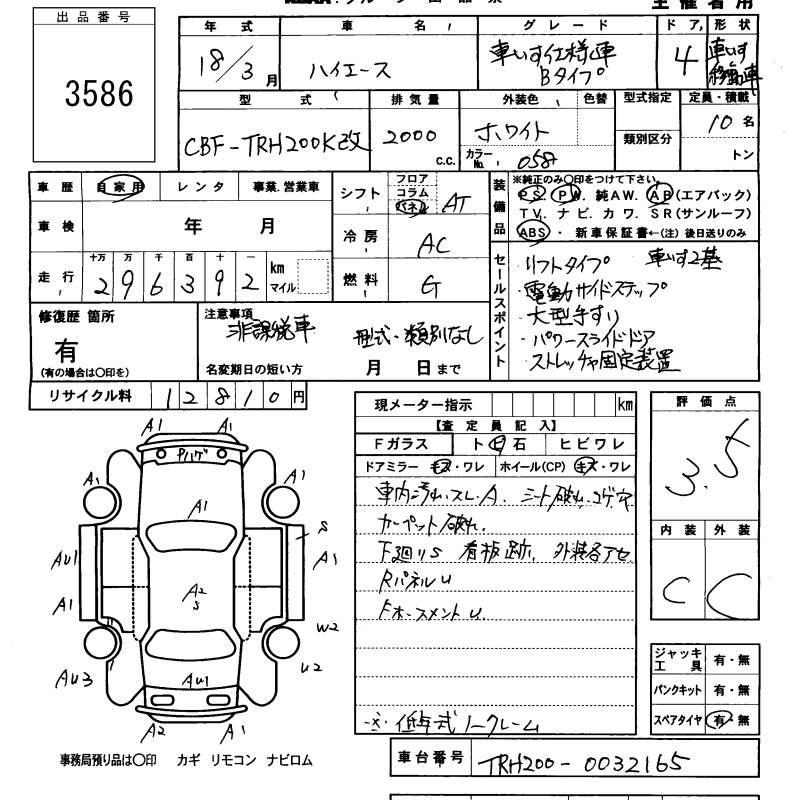 主催者用
出品番号
3586
年式 車名 グレード ドア 形状
18/3月 ハイエース 車いす仕様車 Bタイプ 4 車いす移動車
型式 排気量 外装色 色替 型式指定 定員・積載
CBF-TRH200K改 2000 C.C. ホワイト 類別区分 10名
カラーNo. 058 トン
車歴 自家用 レンタ 事業.営業車
シフト フロア コラム パネル AT
車検 年 月
冷房 AC
走行 十万 万 千 百 十 一 296392 km マイル
燃料 G
装備品
※純正のみ○印をつけて下さい。
PS. PW. 純AW. AB(エアバック)
TV. ナビ. カワ. SR(サンルーフ)
ABS・ 新車保証書←(注) 後日送りのみ
セールスポイント
・リフトタイプ 車いす2基
・電動サイドステップ
・大型手すり
・パワースライドドア
・ストレッチャ固定装置
修復歴 箇所
有
(有の場合は○印を)
注意事項
非課税車 型式・類別なし
名変期日の短い方 月 日まで
リサイクル料 12810円
A1 A1
Pハゲ
A1 A1
A1
S
AU1 A1
A2
S
A1
W2
AU3 U2
AU1
A2 A1
事務局預り品は○印 カギ リモコン ナビロム
現メーター指示 km
【査定員記入】
Fガラス トビ石 ヒビワレ
ドアミラー キズ・ワレ ホイール(CP) キズ・ワレ
車内汚れ.スレ.A. シート破れ.コゲ穴
カーペット破れ.
下廻りS 看板跡. 外装各アセ
RパネルU
FホースメントU.
※低年式ノークレーム
評価点
3.5
内装 外装
C C
ジャッキ工具 有・無
パンクキット 有・無
スペアタイヤ 有・無
車台番号 TRH200-0032165